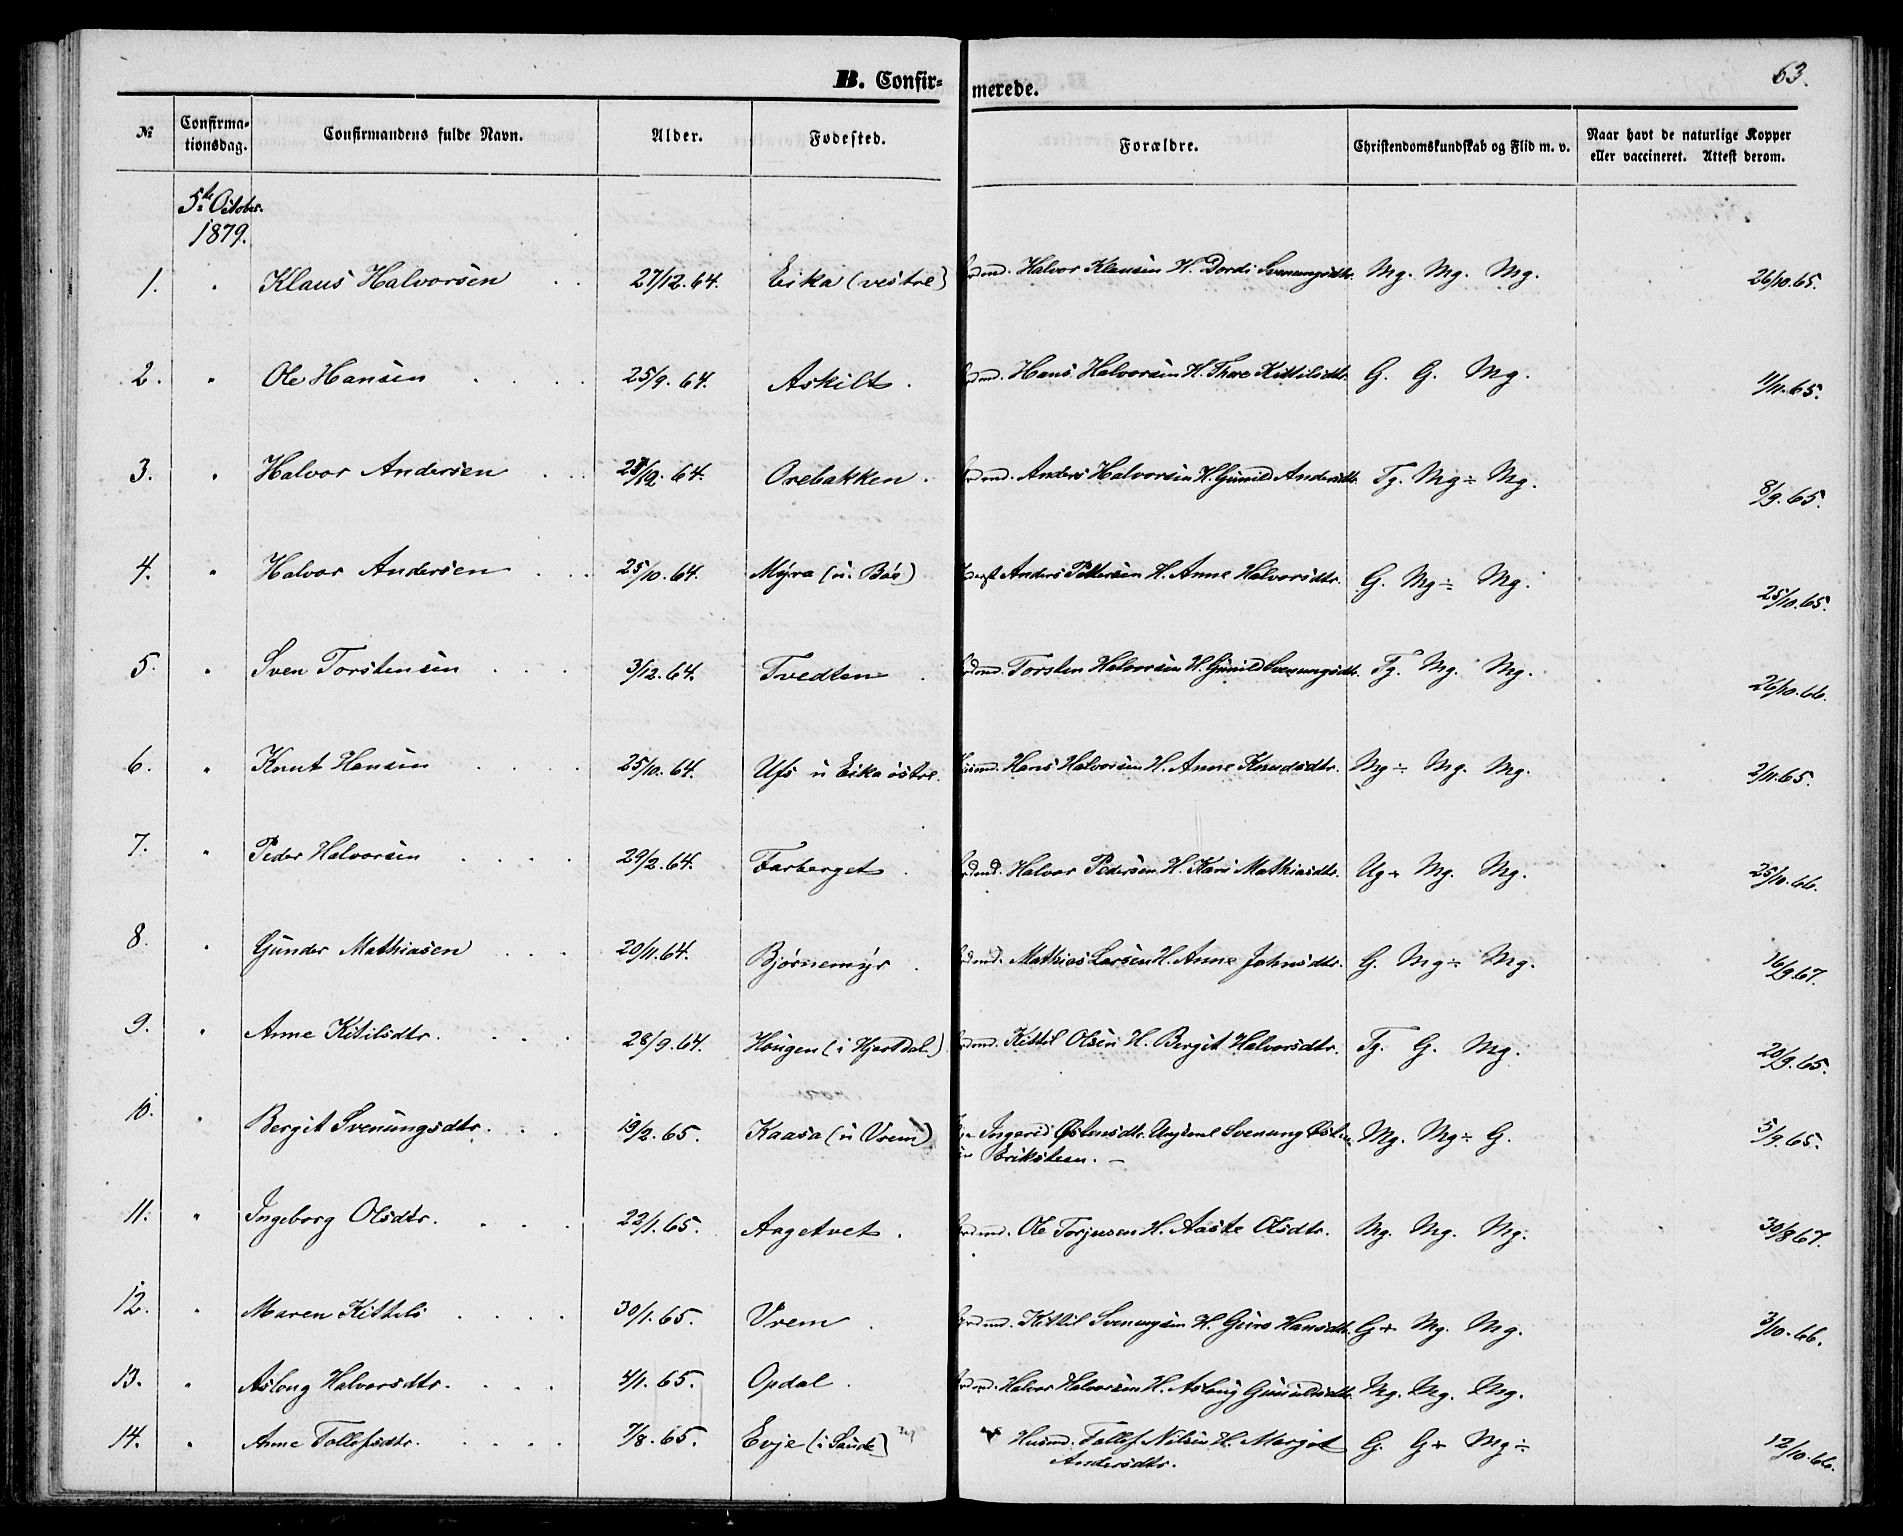 B. Confir-
merede.
63.
№
Confirma-
tionsdag.
Confirmandens fulde Navn.
Alder.
Fødested.
Forældre.
Christendomskundskab og Flid m. v.
Naar havt de naturlige Kopper
eller vaccineret. Attest derom.
5te October
1879.
1. " Klaus Halvorsen 27/12. 64. Eika (vestre) Halvor Klausen H. Dordi Svenungsdtr. Mg. Mg. Mg. 26/10. 65.
2. " Ole Hansen 25/9. 64. Askilt. Hans Halvorsen H. Thore Kittilsdtr. G. G. Mg. 1/11. 65.
3. " Halvor Andersen 64. Orebakken. Anders Halvorsen H. Gunild Andersdtr. Tg. Mg÷ Mg. 8/9. 65.
4. " Halvor Andersen 25/10. 64. Myra (u. Bøe) Anders Pettersen H. Anne Halvorsdtr. G. Mg÷ Mg. 25/10. 65.
5. " Sven Torstensen 3/12. 64. Tvedten Torsten Halvorsen H. Gunild Svenungsdtr. Tg. Mg. Mg. 26/10. 66.
6. " Knut Hansen 25/10. 64. Ufs u Eika østre. Hans Halvorsen H. Anne Knudsdtr. Mg÷ Mg. Mg. 2/11. 65.
7. " Peder Halvorsen 29/2. 64. Farberget Halvor Pedersen H. Kari Mathiasdtr. Ug+ Mg. Mg. 25/10. 66.
8. " Gunder Mathiasen 20/11. 64. Bjørnemyr Mathias Larsen H. Anne Johnsdtr. G. Mg÷ Mg. 16/9. 67.
9. " Anne Kitilsdtr. 28/9. 64. Haugen (i Hjertdal.) Kittil Olsen H. Bergit Halvorsdtr. Tg. G. Mg. 20/9. 65.
10. " Bergit Svenungsdtr. 19/2. 65. Kaasa (u Vrem) Ingerid Østensdtr. Ungkml Svenung Østen Mg. Mg÷ G. 5/9. 65.
Erikstein. —
11. " Ingeborg Olsdtr. 22/1. 65. Aagetvet. Ole Torjusen H. Aaste Olsdtr. Mg. Mg. Mg. 30/8 67.
12. " Maren Kittils 30/1. 65. Vrem Kittil Svenungsen H. Guro Hansdtr. G+ Mg. Mg. 3/10. 66.
13. " Aslaug Halvorsdtr. 4/1. 65. Opdal. Halvor Halvorsen H. Aslaug Gunuldsdtr. Mg. Mg. Mg.
14. " Anne Tollefsdtr. 7/8. 65. Evje (i Saude) Husmd. Tollef Nilsen H. Margit G. G+ Mg÷ 12/10. 66.
Andersdtr.